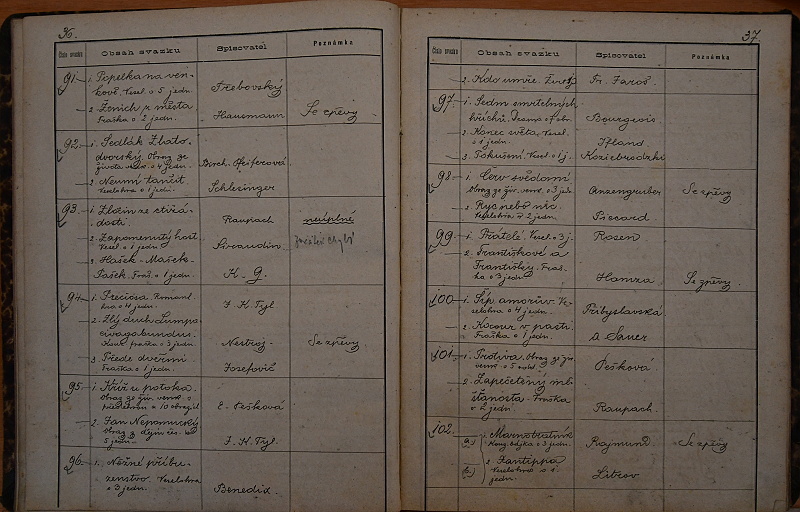 36.
Číslo svazku Obsah svazku Spisovatel Poznámka
91. 1. Popelka na ven-
kově. Vesel. o 5 jedn. Třebovský
2. Ženich z města
Fraška o 2 jedn. Hausmann Se zpěvy
92. 1. Sedlák Zlato-
dvorský. Obraz ze
života o 4 jedn. Birch. Pfeiferová
2. Neumí tančit
Veselohra o 1 jedn. Schlesinger
93. 1. Zločin ze
Raupach neúplné
2. Zapomenutý host.
Vesel. o 1 jedn. Siraudin. chybí
3. Hašek - Mašek -
Pašek. Fraš. o 1 jedn. K. G.
94. 1. Preciosa. Romant.
hra o 4 jedn. J. K. Tyl
2. Zlý duch Lumpa-
civagabundus.
fraška o 3 jedn. Nestroj - Se zpěvy
3. Přede dveřmi
Fraška o 1 jedn. Josefovič
95. 1. Kříž u potoka.
Obraz ze živ. venk. s
předehrou o 10 obraz. E. Pešková
2. Jan Nepomucký
Obraz z
5 jedn. J. K. Tyl.
96. 1. Něžné příbu-
zenstvo. Veselohra
o 3 jedn. Benedix.
37.
Číslo svazku Obsah svazku Spisovatel Poznámka
2. Kdo umře. Fr. Jaroš.
97. 1. Sedm smrtelných
hříchů. Drama o 7 obr. Bourgeois
2. Konec světa. Vesel.
o 1 jedn. Iffland
3. Pokušení. Vesel. o 1 j. Koziebrodzki
98. 1. Červ svědomí
Obraz ze živ. venk. o 3 jed. Anzengruber Se zpěvy
2. Ryc nebo nic.
Veselohra o 2 jedn. Picard
99. 1. Přátelé. Vesel. o 3 j. Rosen
2. Františkové a
Františky. Fraš-
ka o 3 jedn. Hamza Se zpěvy
100. 1. Šíp amorův Ve-
selohra o 4 jedn. Přibyslavská
2. Kocour v pasti.
Fraška o 1 jedn. A. Sauer
101. 1. Protiva. Obraz ze ži.
venk. o 5 Pešková
2. Zapečetěný mě-
šťanosta. Fraška
o 2 jedn. Raupach.
102. a.) 1. Marnotratník
Kouz. bájka o 3 jedn. Rajmund. Se zpěvy
b.) 2. Xantippa
Veselohra o 1
jedn. Librov